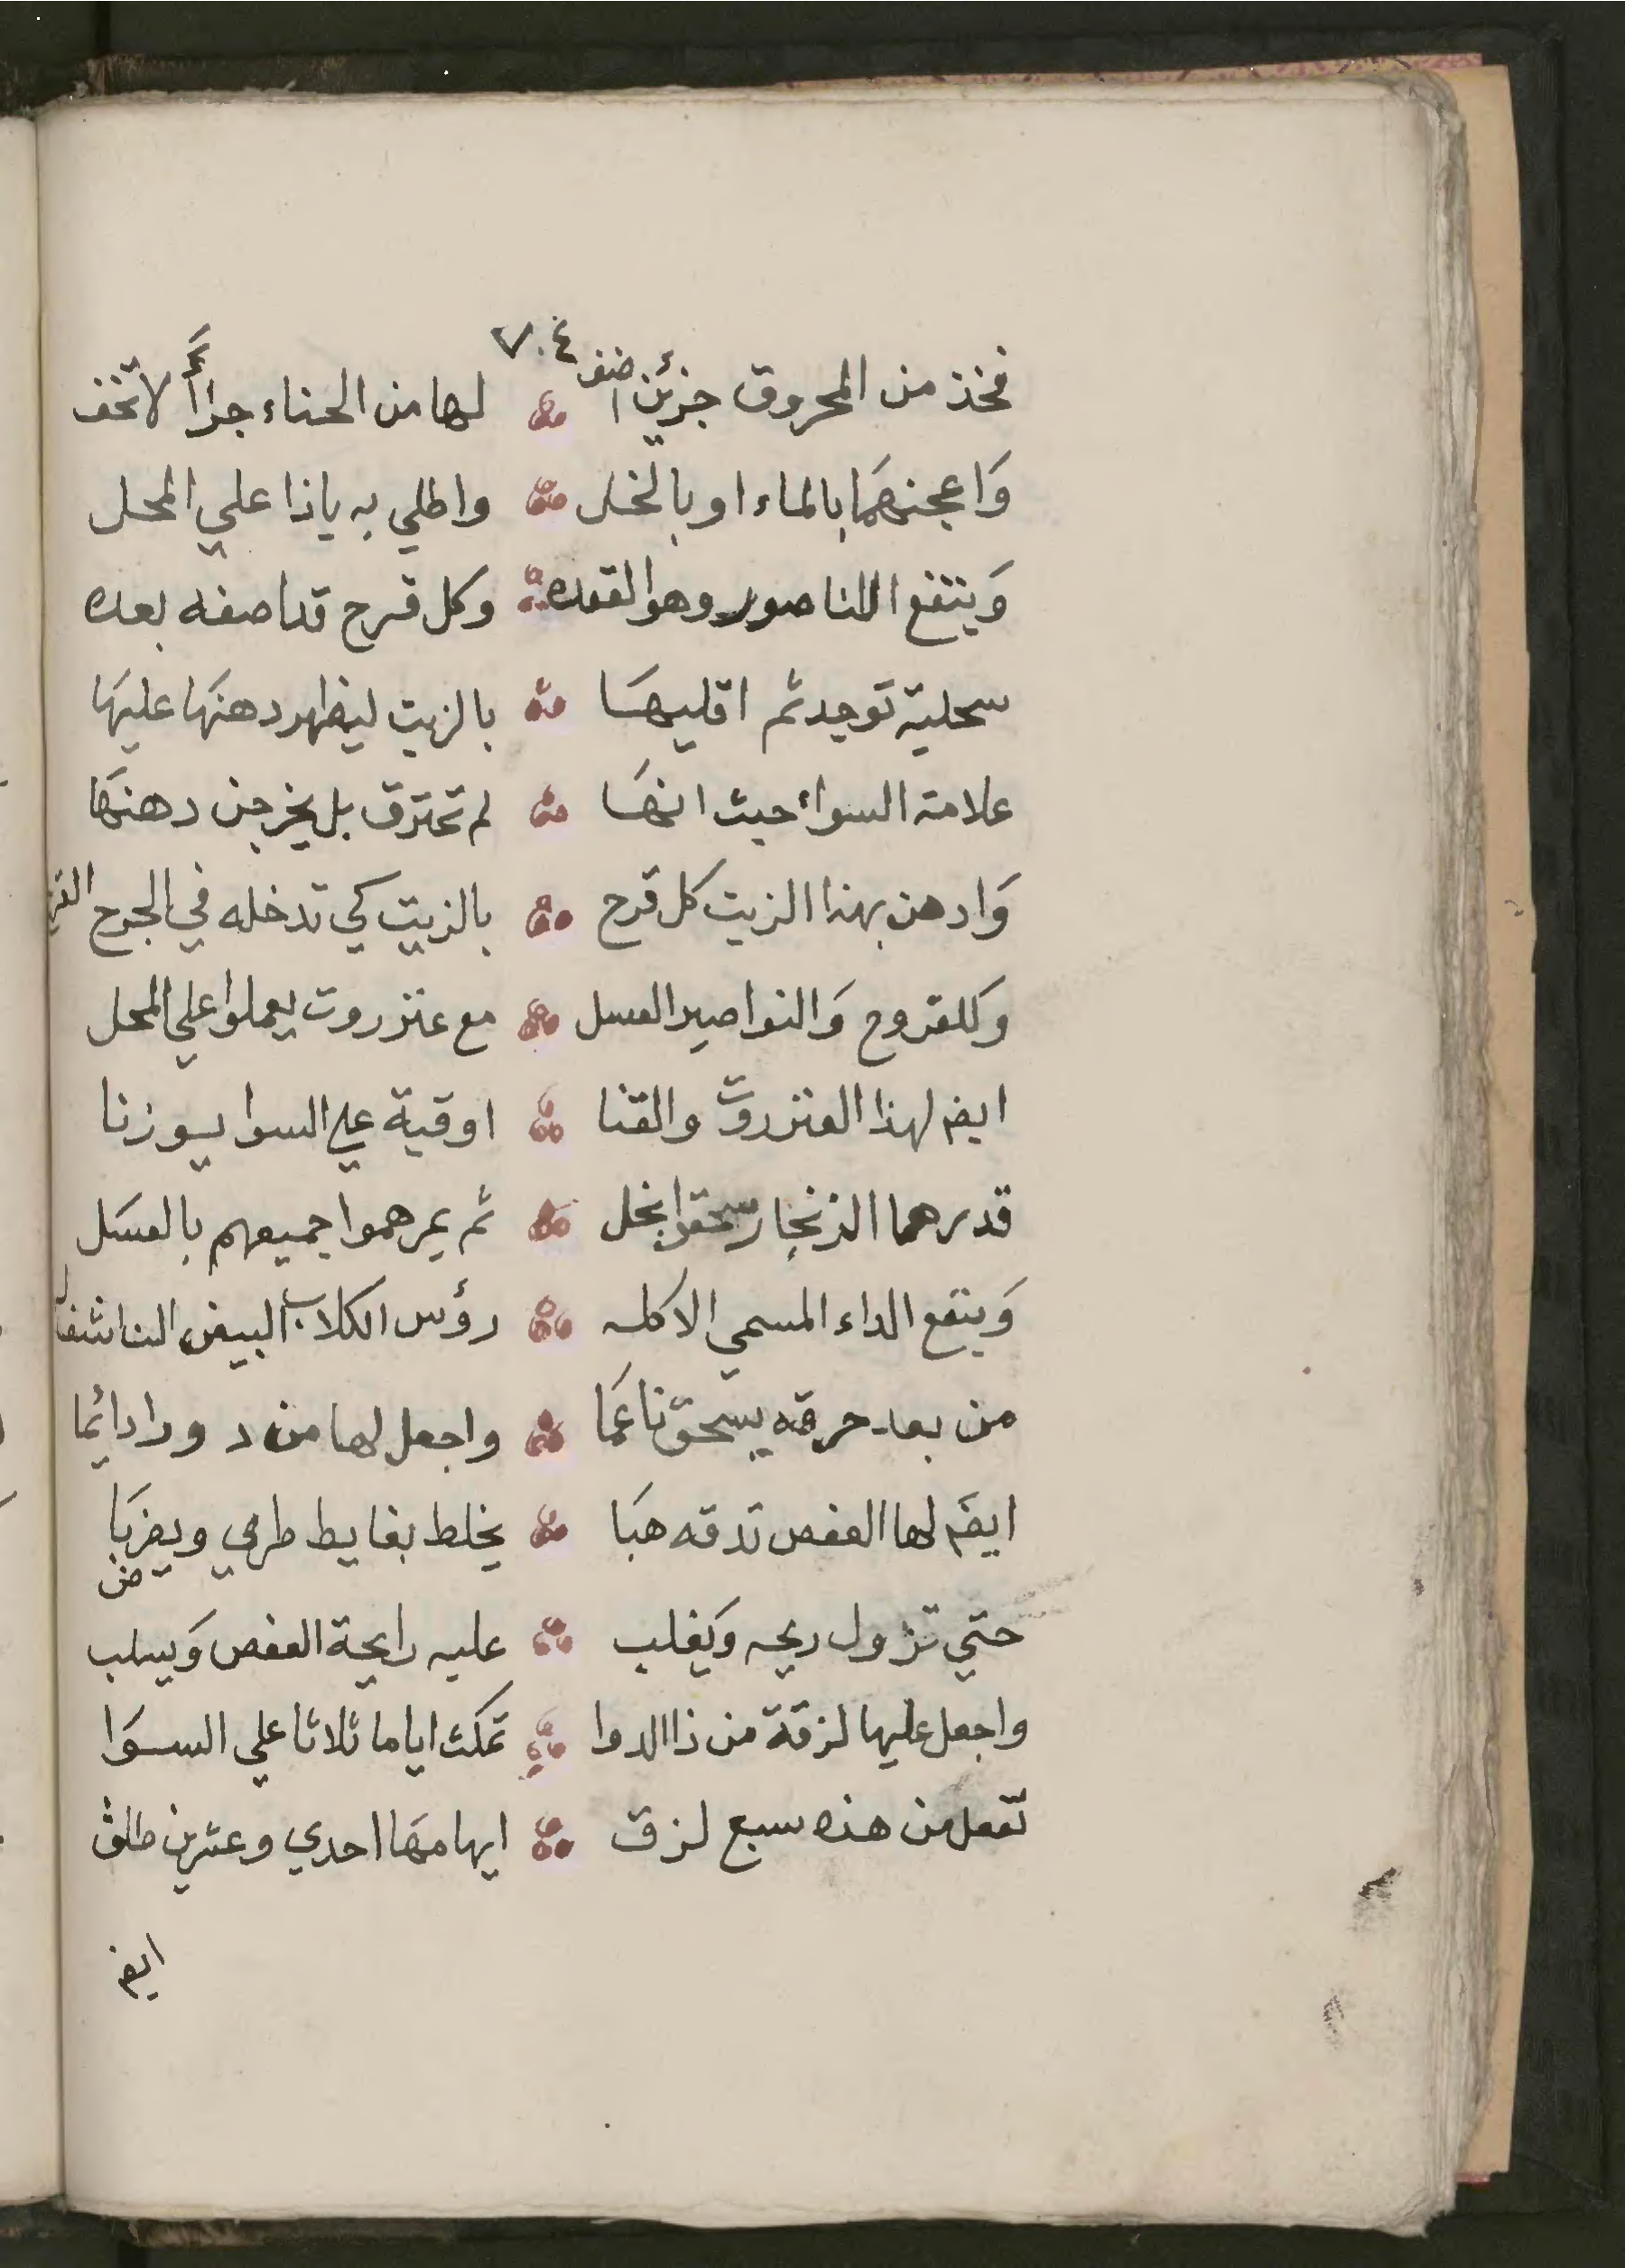 ٧٠٤
فخذ من المحروق جزئين اضف لها من الحناء جزأً لا تخف
وَاعجنهَما بالماء او بالخل واطلي به ياذا علي المحل
وَينفع الناصور وهو القعده وكل قرح قد اصفه بعده
سحلية توجد ثم اقليهَا بالزيت ليظهر دهنهَا عليهَا
علامة السواء حيث انهَا لم تحترق بل يخرجن دهنهَا
وَادهن بهذا الزيت كل قرح بالزيت كي تدخله في الجرح
وَللقروح وَالنواصير العسل مع عنزروت يعملوا علي المحل
ايض لهذا العنزروت والقنا اوقية علي السوا يوزنا
قدرهما الزنجار سحقوا بخل ثم يمرهموا جميعهم بالعسَل
وَينفع الداء المسمي الاكله رؤس الكلاب البيض الناشفا
من بعد حرقه يسحق ناعمَا واجعل لها من دورا دائما
ايضَ لها العفص تدقه هبَا يخلط بغايط طري ويضربَا
حتي تزول ريحه وَيغلب عليه رايحة العفص وَيسلب
واجعل عليها لزقة من ذا الدوا تمكث اياما ثلاثا علي السوَا
تفعل من هذه سبع لزق ايهامهَا احدي وعشرين طلق
ايض